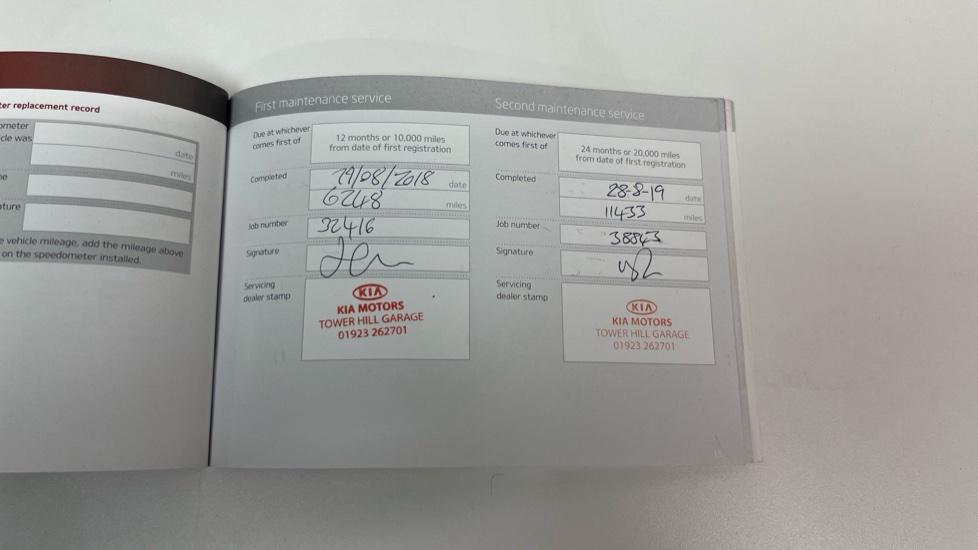 ter replacement record
ometer
cle was
date
miles
ne
ature
e vehicle mileage, add the mileage above
on the speedometer installed.
First maintenance service
Due at whichever
comes first of
12 months or 10,000 miles
from date of first registration
Completed
29/08/2018 date
6248 miles
Job number
32416
Signature
Servicing
dealer stamp
KIA
KIA MOTORS
TOWER HILL GARAGE
01923 262701
Second maintenance service
Due at whichever
comes first of
24 months or 20,000 miles
from date of first registration
Completed
28-8-19 date
11433 miles
Job number
38843
Signature
Servicing
dealer stamp
KIA
KIA MOTORS
TOWER HILL GARAGE
01923 262701